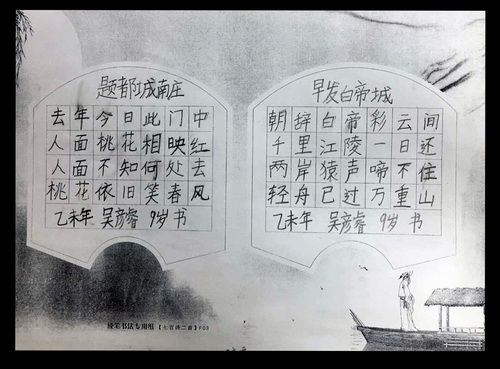 题都城南庄
去年今日此门中
人面桃花相映红
人面不知何处去
桃花依旧笑春风
乙未年 吴彦睿 9岁 书
早发白帝城
朝辞白帝彩云间
千里江陵一日还
两岸猿声啼不住
轻舟已过万重山
乙未年 吴彦睿 9岁 书
硬笔书法专用纸【七言诗二首】F03